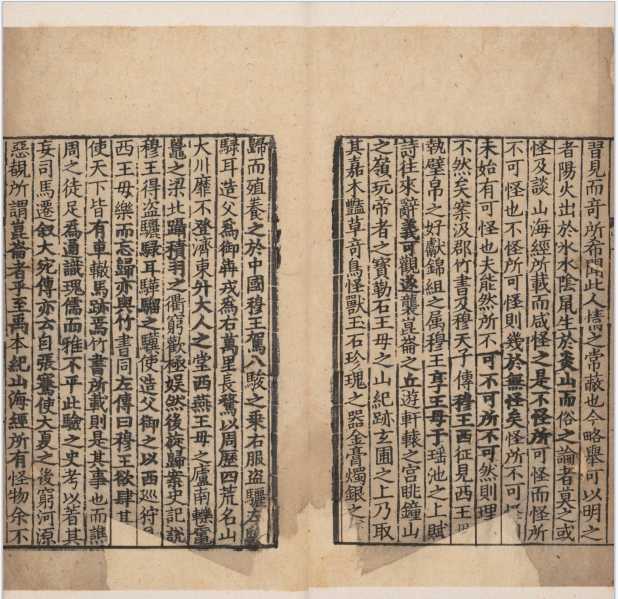 習見而奇所希聞此人情之常蔽也今略舉可以明之
者陽火出於冰水陰鼠生於炎山而俗之論者莫之或
怪及談山海經所載而咸怪之是不怪所可怪而怪所
不可怪也不怪所可怪則幾於無怪矣怪所不可
未始有可怪也夫能然所不可不可所不可然則理
不然矣案汲郡竹書及穆天子傳穆王西征見西王
執璧帛之好獻錦組之属穆王享王母于瑶池之上賦
詩往來辭義可觀遂襲崑崙之丘遊軒轅之宫眺鐘山
之嶺玩帝者之寶勒石王母之山紀跡玄圃之上乃取
其嘉木豔草奇鳥怪獸玉石珍瑰之器金膏燭銀之
歸而殖養之於中國穆王駕八駿之乘右服盗驪左
騄耳造父為御犇戎為右萬里長騖以周歷四荒名山
大川靡不登濟東升大人之堂西燕王母之廬南轢黿
鼉之梁北躡積羽之衢窮歡極娱然後旋歸案史記說
穆王得盗驪騄耳驊騮之驥使造父御之以西巡狩
西王母樂而忘歸亦與竹書同左傳曰穆王欲肆其
使天下皆有車轍馬跡焉竹書所載則是其事也而譙
周之徒足為通識瑰儒而雅不平此驗之史考以著其
妄司馬遷叙大宛傳亦云自張騫使大夏之後窮河源
惡覩所謂崑崙者乎至禹本紀山海經所有怪物余不